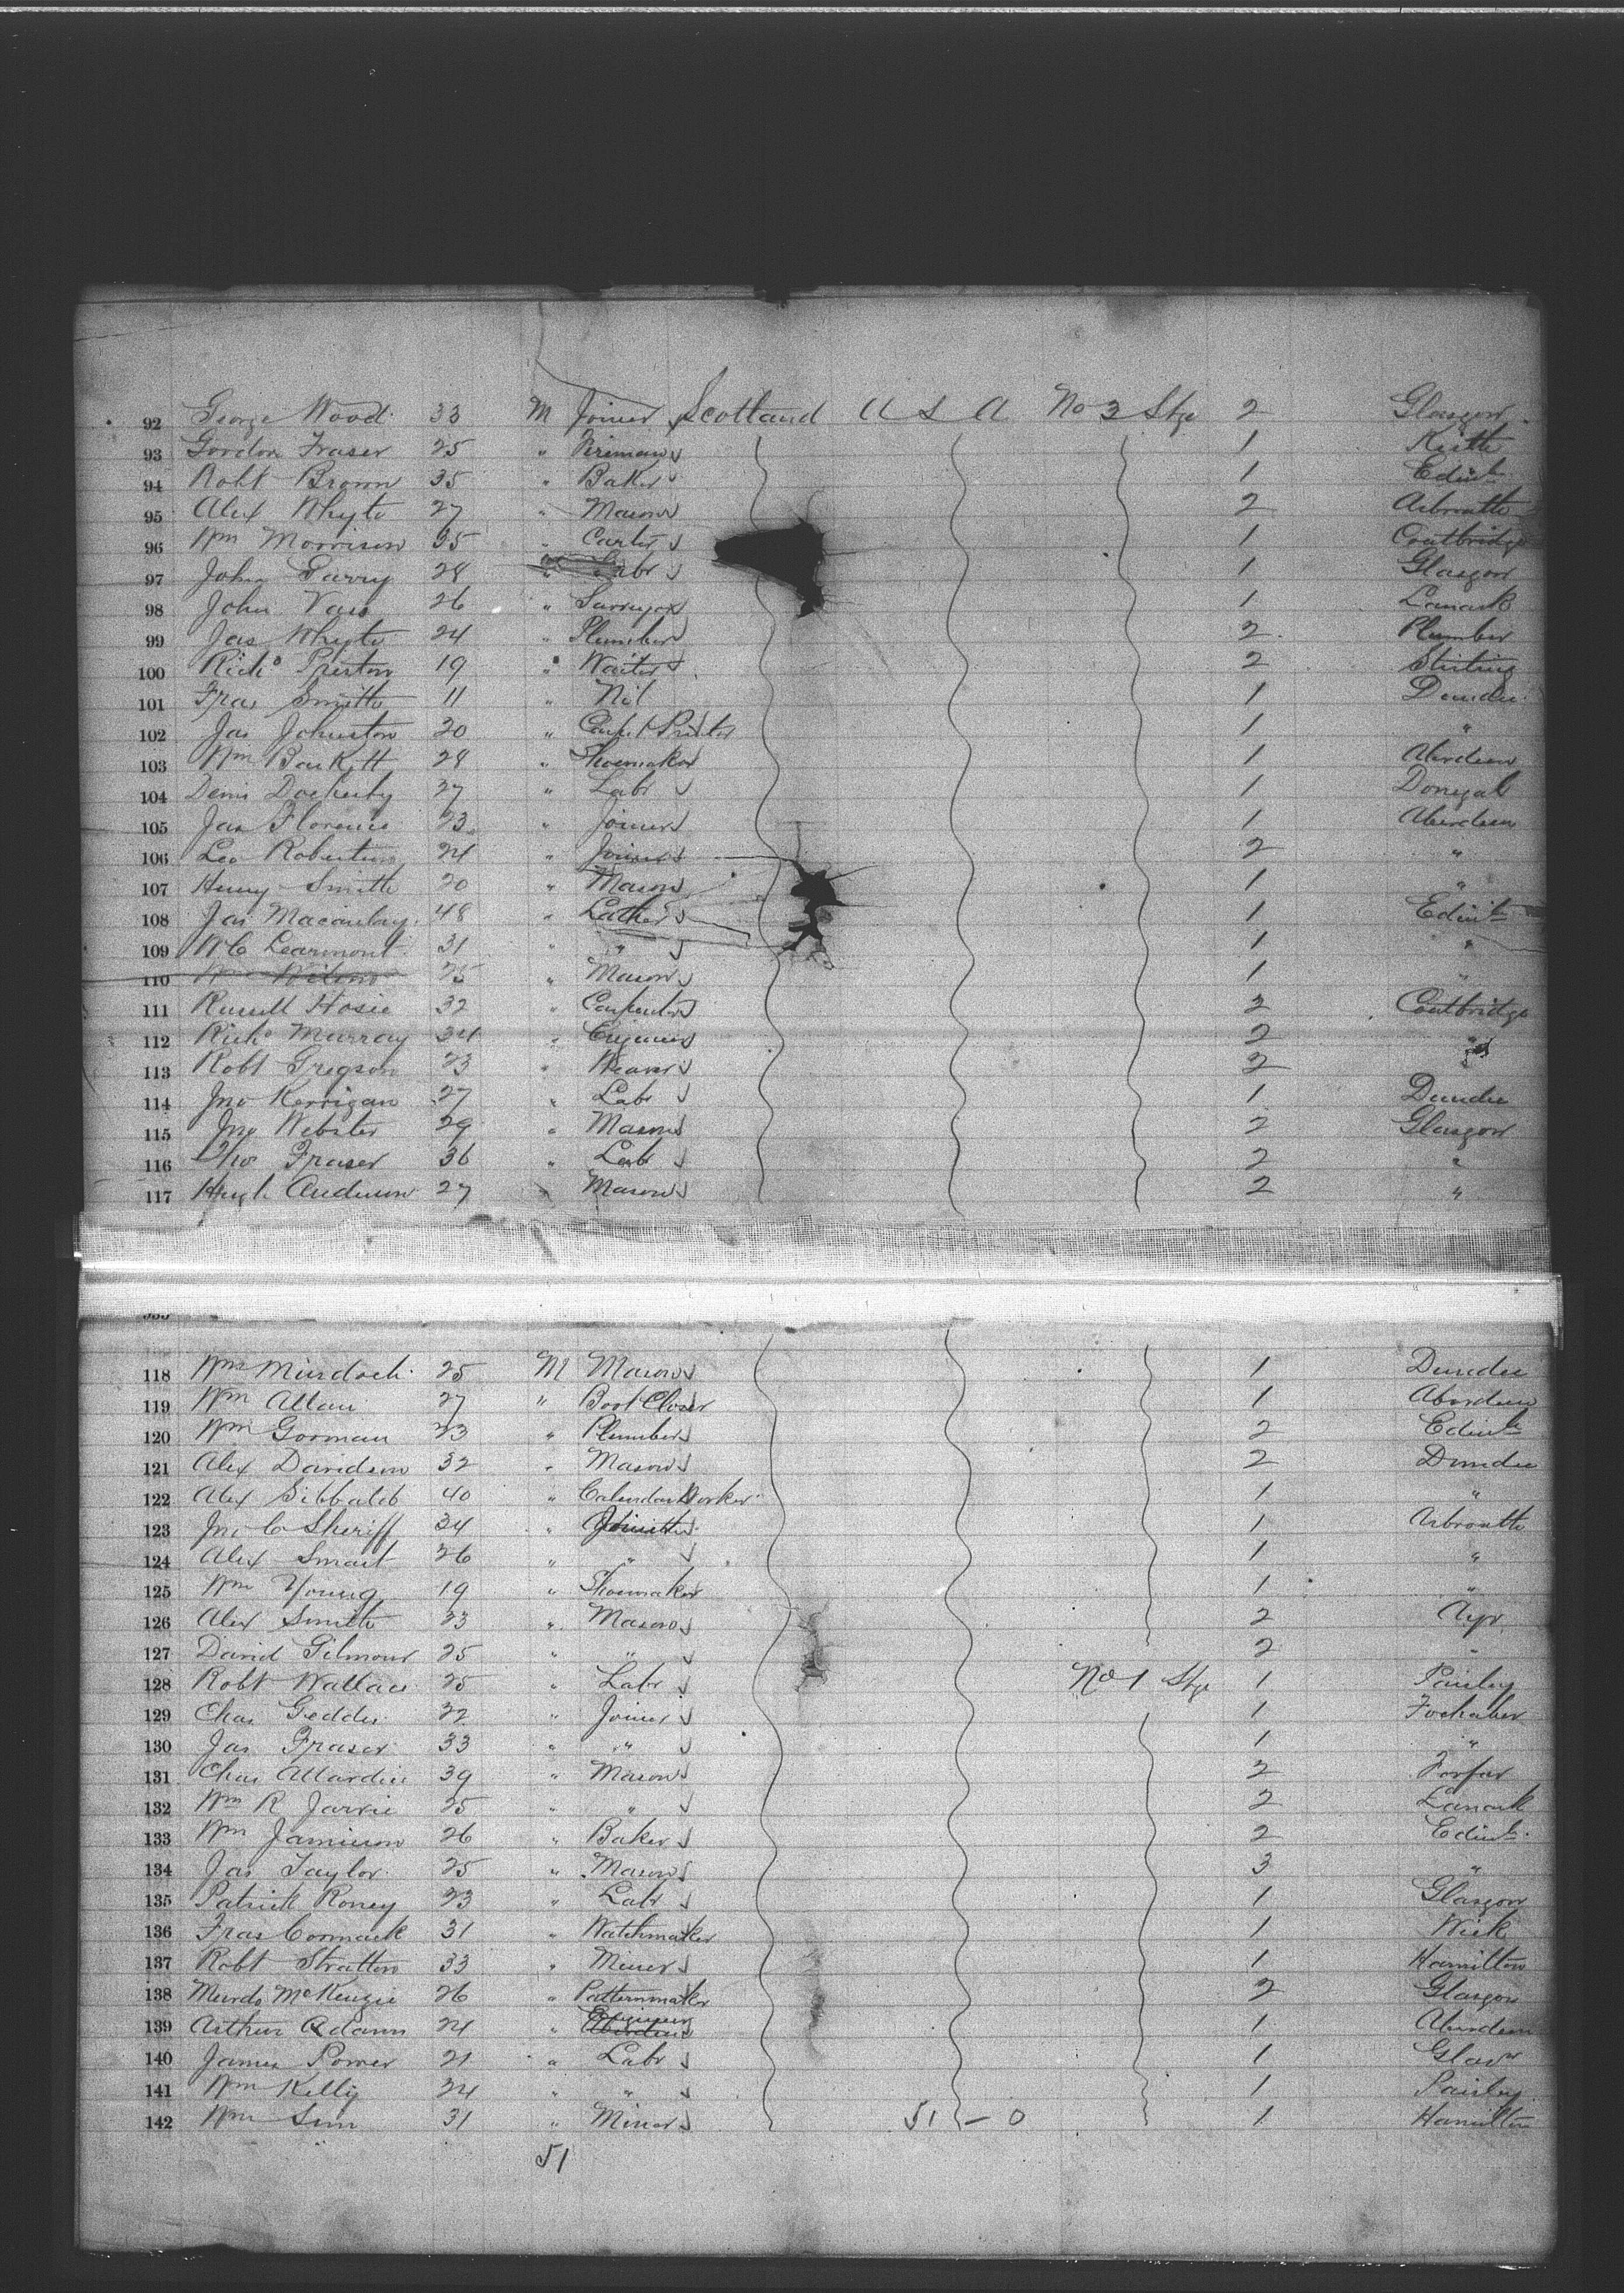 92 George Wood 33 M Joiner Scotland U S A No 3 Stge 2 Glasgow
93 Gordon Fraser 25 " Fireman 1 Keith
94 Robt Brown 35 " Baker 1 Edinb
95 Alex Whyte 27 " Mason 2 Arbroath
96 Wm Morrison 35 " Carter 1 Coatbridge
97 John Garry 28 " Labr 1 Glasgow
98 John Vass 26 " Surveyor 1 Lanark
99 Jas Whyte 24 " Plumber 2 Plumber
100 Richd Preston 19 " Waiter 2 Stirling
101 Fras Smith 11 " Nil 1 Dundee
102 Jas Johnston 20 " 1 "
103 Wm 28 " Shoemaker 1 Aberdeen
104 Denis Docherty 27 " Labr 1 Donegal
105 Jas Florence 23 " Joiner 1 Aberdeen
106 Geo Robertson 24 " Joiner 2 "
107 Henry Smith 20 " Mason 1 "
108 Jas Macaulay 48 " Lather 1 Edinb
109 W C Learmont 31 " " 1 "
110 Wm Wilson 25 " Mason 1 "
111 Russell Hosie 32 " Carpenter 2 Coatbridge
112 Richd Murray 34 " Engineer 2 "
113 Robt Gregson 23 " Weaver 2 "
114 Jno Kerrigan 27 " Labr 1 Dundee
115 Jno Webster 29 " Mason 2 Glasgow
116 Thos Fraser 36 " Labr 2 "
117 Hugh Anderson 27 " Mason 2 "
118 Wm Murdoch 25 M Mason 1 Dundee
119 Wm Allan 27 " Boot Closer 1 Aberdeen
120 Wm Gorman 23 " Plumber 2 Edinb
121 Alex Davidson 32 " Mason 2 Dundee
122 Alex Sibbald 40 " Calendar Worker 1 "
123 Jno C Sheriff 34 " 1 Arbroath
124 Alex Smart 26 " " 1 "
125 Wm Young 19 " Shoemaker 1 "
126 Alex Smith 23 " Mason 2 Ayr
127 David Gilmour 25 " " 2 "
128 Robt Wallace 25 " Labr No 1 Stge 1 Paisley
129 Chas Geddes 22 " Joiner 1 Fochaber
130 Jas Fraser 33 " " 1 "
131 Chas Allardice 39 " Mason 2 Forfar
132 Wm R Jarvie 25 " " 2 Lanark
133 Wm Jamieson 26 " Baker 2 Edinb
134 Jas Taylor 25 " Mason 3 "
135 Patrick Roney 23 " Labr 1 Glasgow
136 Fras Cormack 31 " Watchmaker 1 Wick
137 Robt Stratton 33 " Miner 1 Hamilton
138 Murdo McKenzie 26 " Patternmaker 2 Glasgow
139 Arthur Adam 24 " Engineer 1 Aberdeen
140 James Power 21 " Labr 1 Glasw
141 Wm Kelly 24 " " 1 Paisley
142 Wm Sim 31 " Miner 51 — 0 1 Hamilton
51